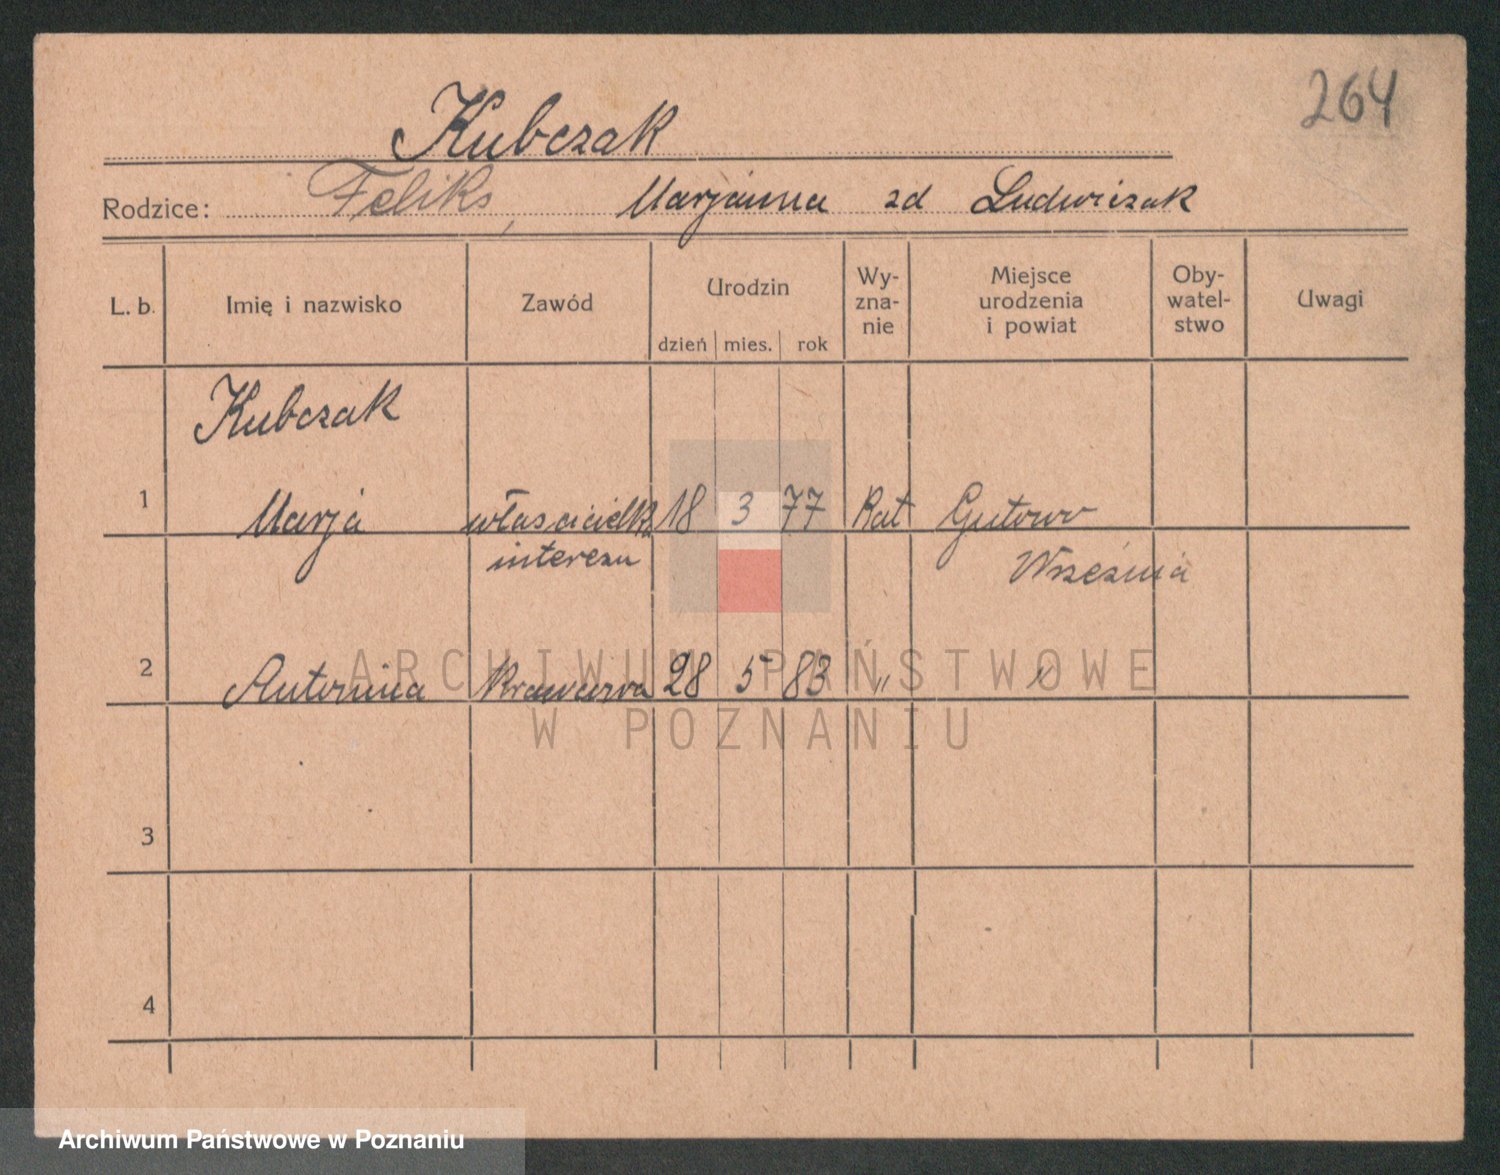 264
Kubczak
Rodzice: Feliks, Marjanna zd Ludwiczak
L. b. Imię i nazwisko Zawód Urodzin dzień mies. rok Wy-zna-nie Miejsce urodzenia i powiat Oby-watel-stwo Uwagi
Kubczak
1 Marja właścicielka 18 3 77 Kat Gutowo
interesu Września
2 Antonina Krawcowa 28 5 83 " "
ARCHIWUM PAŃSTWOWE
W POZNANIU
3
4
Archiwum Państwowe w Poznaniu